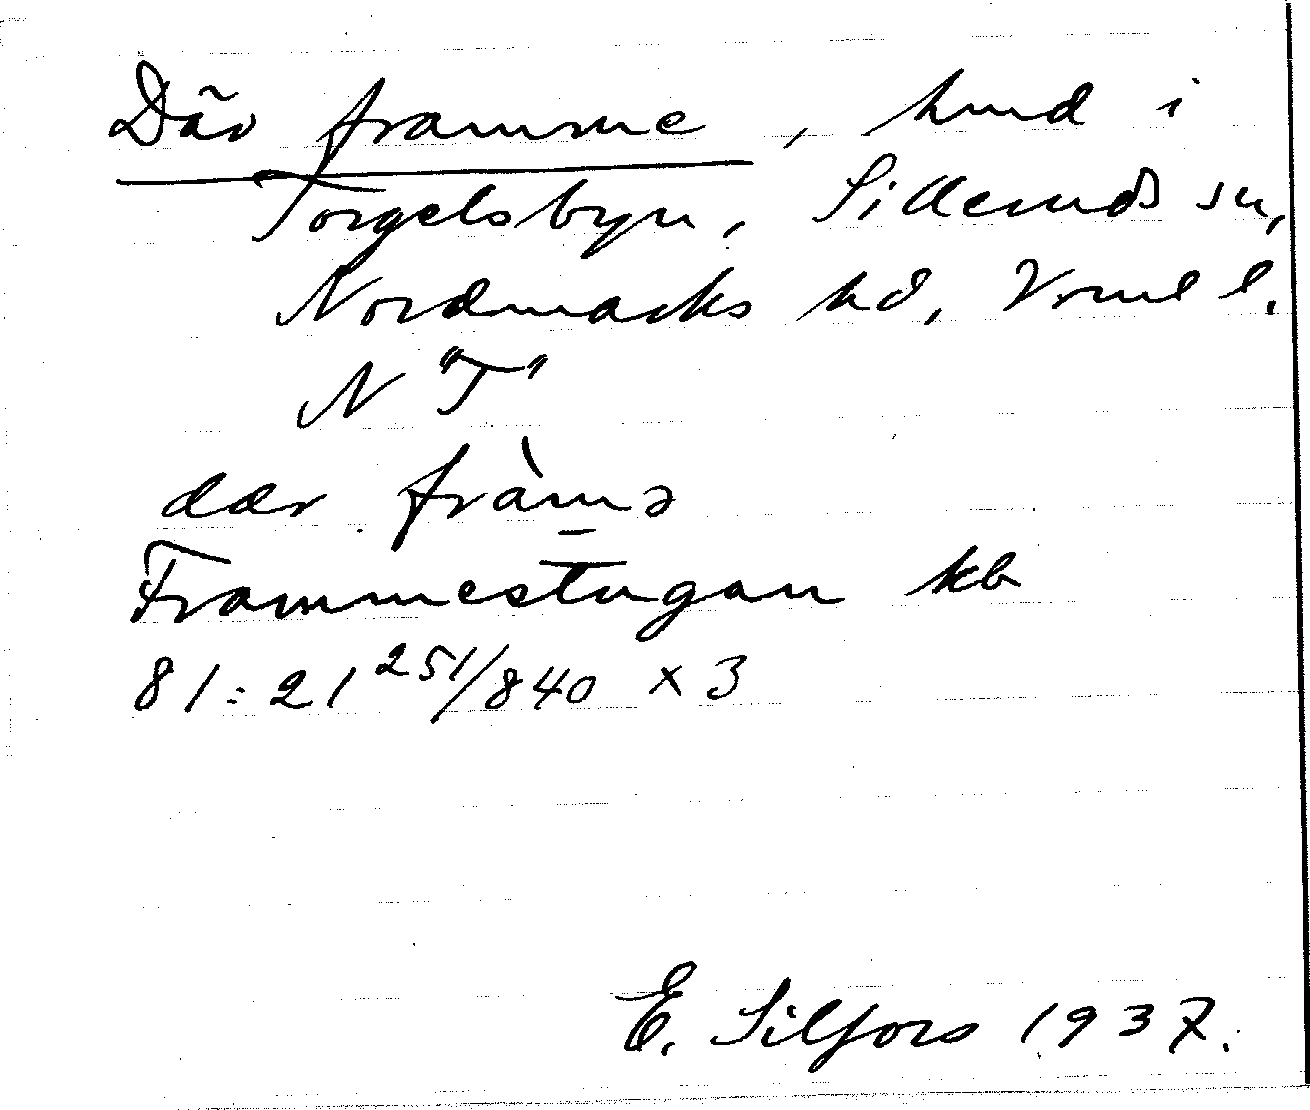 Där framme, hmd i
Torgelsbyn, Silleruds sn,
Nordmarks hd, Vrml l.
N "T"
dær fràmə
Frammestugan kb
81:21 251/840 x 3
E. Silfors 1937.